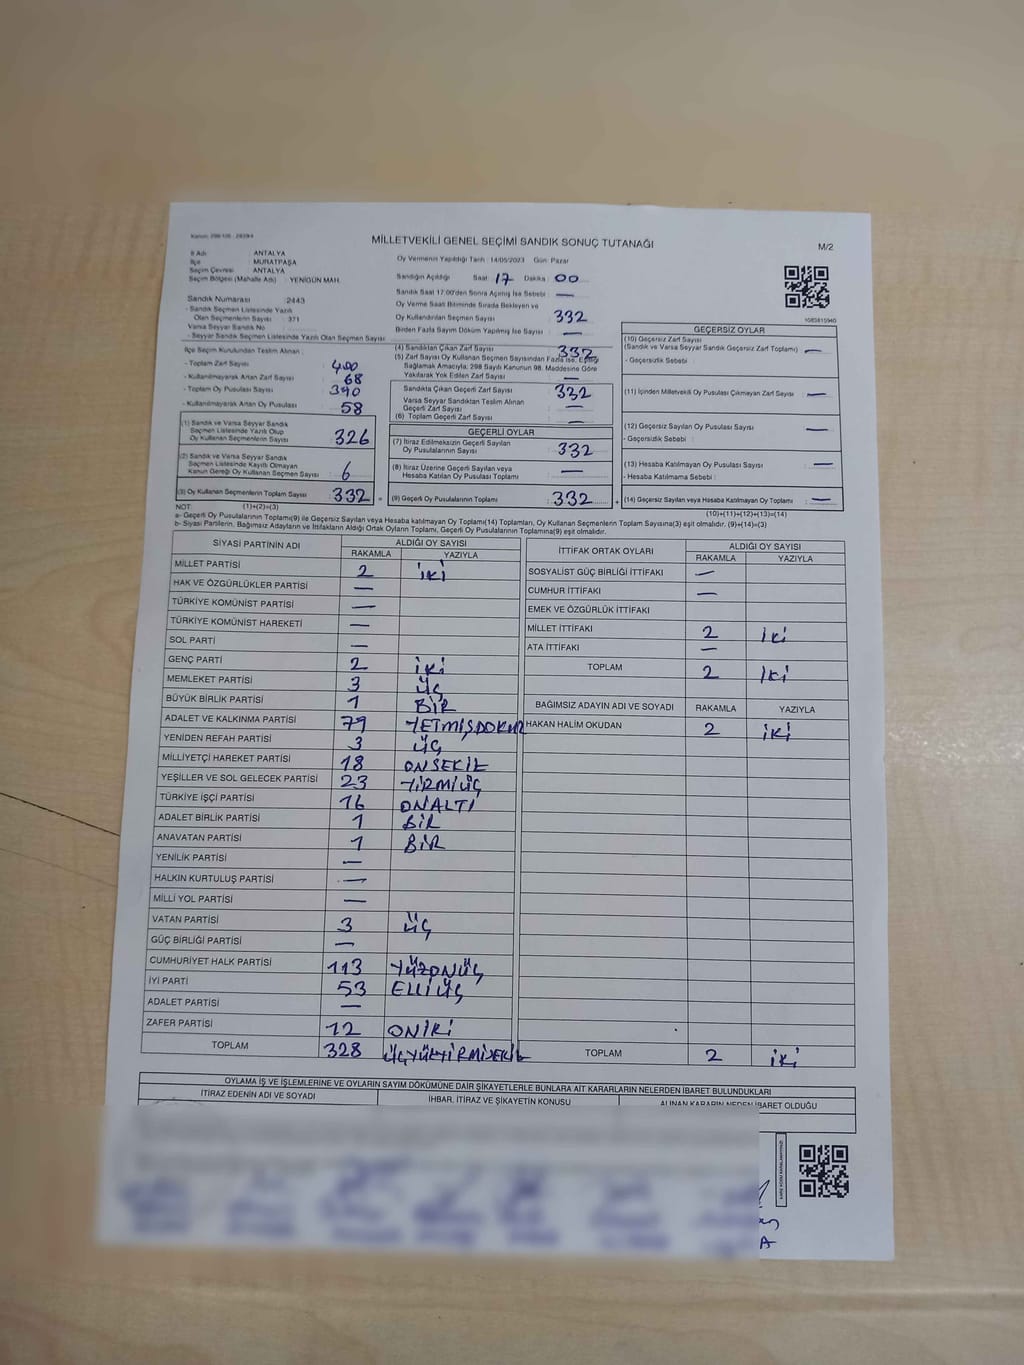 MİLLETVEKİLİ GENEL SEÇİMİ SANDIK SONUÇ TUTANAĞI
M/2
İl Adı ANTALYA
İlçe MURATPAŞA
Seçim Çevresi ANTALYA
Seçim Bölgesi (Mahalle Adı) : YENİGÜN MAH.
Sandık Numarası : 2443
- Sandık Seçmen Listesinde Yazılı
Olan Seçmenlerin Sayısı : 371
Varsa Seyyar Sandık No
- Seyyar Sandık Listesinde Yazılı Olan Seçmen Sayısı
Oy Vermenin Yapıldığı Tarih : 14/05/2023 Gün: Pazar
Sandığın Açıldığı Saat: 17 Dakika: 00
Sandık Saat 17.00'den Sonra Açılmış İse Sebebi : —
Oy Verme Saat Bitiminde Sırada Bekleyen ve
Oy Kullandırılan Seçmen Sayısı 332
Birden Fazla Sayım Döküm Yapılmış İse Sayısı : —
1085815940
İlçe Seçim Kurulundan Teslim Alınan :
- Toplam Zarf Sayısı : 400
- Kullanılmayarak Artan Zarf Sayısı : 68
- Toplam Oy Pusulası Sayısı : 390
- Kullanılmayarak Artan Oy Pusulası : 58
(1) Sandık ve Varsa Seyyar Sandık
Seçmen Listesinde Yazılı Olup
Oy Kullanan Seçmenlerin Sayısı 326
(2) Sandık ve Varsa Seyyar Sandık
Seçmen Listesinde Kayıtlı Olmayan
Kanun Gereği Oy Kullanan Seçmen Sayısı 6
(3) Oy Kullanan Seçmenlerin Toplam Sayısı 332 =
(4) Sandıktan Çıkan Zarf Sayısı 332
(5) Zarf Sayısı Oy Kullanan Seçmen Sayısından Fazla ise, Eşitliği
Sağlamak Amacıyla; 298 Sayılı Kanunun 98. Maddesine Göre
Yakılarak Yok Edilen Zarf Sayısı —
Sandıkta Çıkan Geçerli Zarf Sayısı : 332
Varsa Seyyar Sandıktan Teslim Alınan
Geçerli Zarf Sayısı : —
(6) Toplam Geçerli Zarf Sayısı : —
GEÇERLİ OYLAR
(7) İtiraz Edilmeksizin Geçerli Sayılan
Oy Pusulalarının Sayısı : 332
(8) İtiraz Üzerine Geçerli Sayılan veya
Hesaba Katılan Oy Pusulası Toplamı —
(9) Geçerli Oy Pusulalarının Toplamı 332 +
GEÇERSİZ OYLAR
(10) Geçersiz Zarf Sayısı
(Sandık ve Varsa Seyyar Sandık Geçersiz Zarf Toplamı) —
- Geçersizlik Sebebi :
(11) İçinden Milletvekili Oy Pusulası Çıkmayan Zarf Sayısı —
(12) Geçersiz Sayılan Oy Pusulası Sayısı —
- Geçersizlik Sebebi :
(13) Hesaba Katılmayan Oy Pusulası Sayısı —
- Hesaba Katılmama Sebebi :
(14) Geçersiz Sayılan veya Hesaba Katılmayan Oy Toplamı —
NOT: (1)+(2)=(3)
(10)+(11)+(12)+(13)=(14)
a- Geçerli Oy Pusulalarının Toplamı(9) ile Geçersiz Sayılan veya Hesaba katılmayan Oy Toplamı(14) Toplamları, Oy Kullanan Seçmenlerin Toplam Sayısına(3) eşit olmalıdır. (9)+(14)=(3)
b- Siyasi Partilerin, Bağımsız Adayların ve İttifakların Aldığı Ortak Oyların Toplamı, Geçerli Oy Pusulalarının Toplamına(9) eşit olmalıdır.
SİYASİ PARTİNİN ADI ALDIĞI OY SAYISI
RAKAMLA YAZIYLA
MİLLET PARTİSİ 2 iki
HAK VE ÖZGÜRLÜKLER PARTİSİ —
TÜRKİYE KOMÜNİST PARTİSİ —
TÜRKİYE KOMÜNİST HAREKETİ —
SOL PARTİ —
GENÇ PARTİ 2 iki
MEMLEKET PARTİSİ 3 ÜÇ
BÜYÜK BİRLİK PARTİSİ 1 BİR
ADALET VE KALKINMA PARTİSİ 79 YETMİŞDOKUZ
YENİDEN REFAH PARTİSİ 3 ÜÇ
MİLLİYETÇİ HAREKET PARTİSİ 18 ONSEKİZ
YEŞİLLER VE SOL GELECEK PARTİSİ 23 YİRMİÜÇ
TÜRKİYE İŞÇİ PARTİSİ 16 ONALTI
ADALET BİRLİK PARTİSİ 1 BİR
ANAVATAN PARTİSİ 1 BİR
YENİLİK PARTİSİ —
HALKIN KURTULUŞ PARTİSİ —
MİLLİ YOL PARTİSİ —
VATAN PARTİSİ 3 ÜÇ
GÜÇ BİRLİĞİ PARTİSİ —
CUMHURİYET HALK PARTİSİ 113 YÜZONÜÇ
İYİ PARTİ 53 ELLİÜÇ
ADALET PARTİSİ —
ZAFER PARTİSİ 12 ONİKİ
TOPLAM 328 ÜÇYÜZYİRMİSEKİZ
İTTİFAK ORTAK OYLARI ALDIĞI OY SAYISI
RAKAMLA YAZIYLA
SOSYALİST GÜÇ BİRLİĞİ İTTİFAKI —
CUMHUR İTTİFAKI —
EMEK VE ÖZGÜRLÜK İTTİFAKI
MİLLET İTTİFAKI 2 iki
ATA İTTİFAKI —
TOPLAM 2 iki
BAĞIMSIZ ADAYIN ADI VE SOYADI RAKAMLA YAZIYLA
HAKAN HALİM OKUDAN 2 iki
TOPLAM 2 iki
OYLAMA İŞ VE İŞLEMLERİNE VE OYLARIN SAYIM DÖKÜMÜNE DAİR ŞİKAYETLERLE BUNLARA AİT KARARLARIN NELERDEN İBARET BULUNDUKLARI
İTİRAZ EDENİN ADI VE SOYADI İHBAR, İTİRAZ VE ŞİKAYETİN KONUSU ALINAN KARARIN NEDEN İBARET OLDUĞU